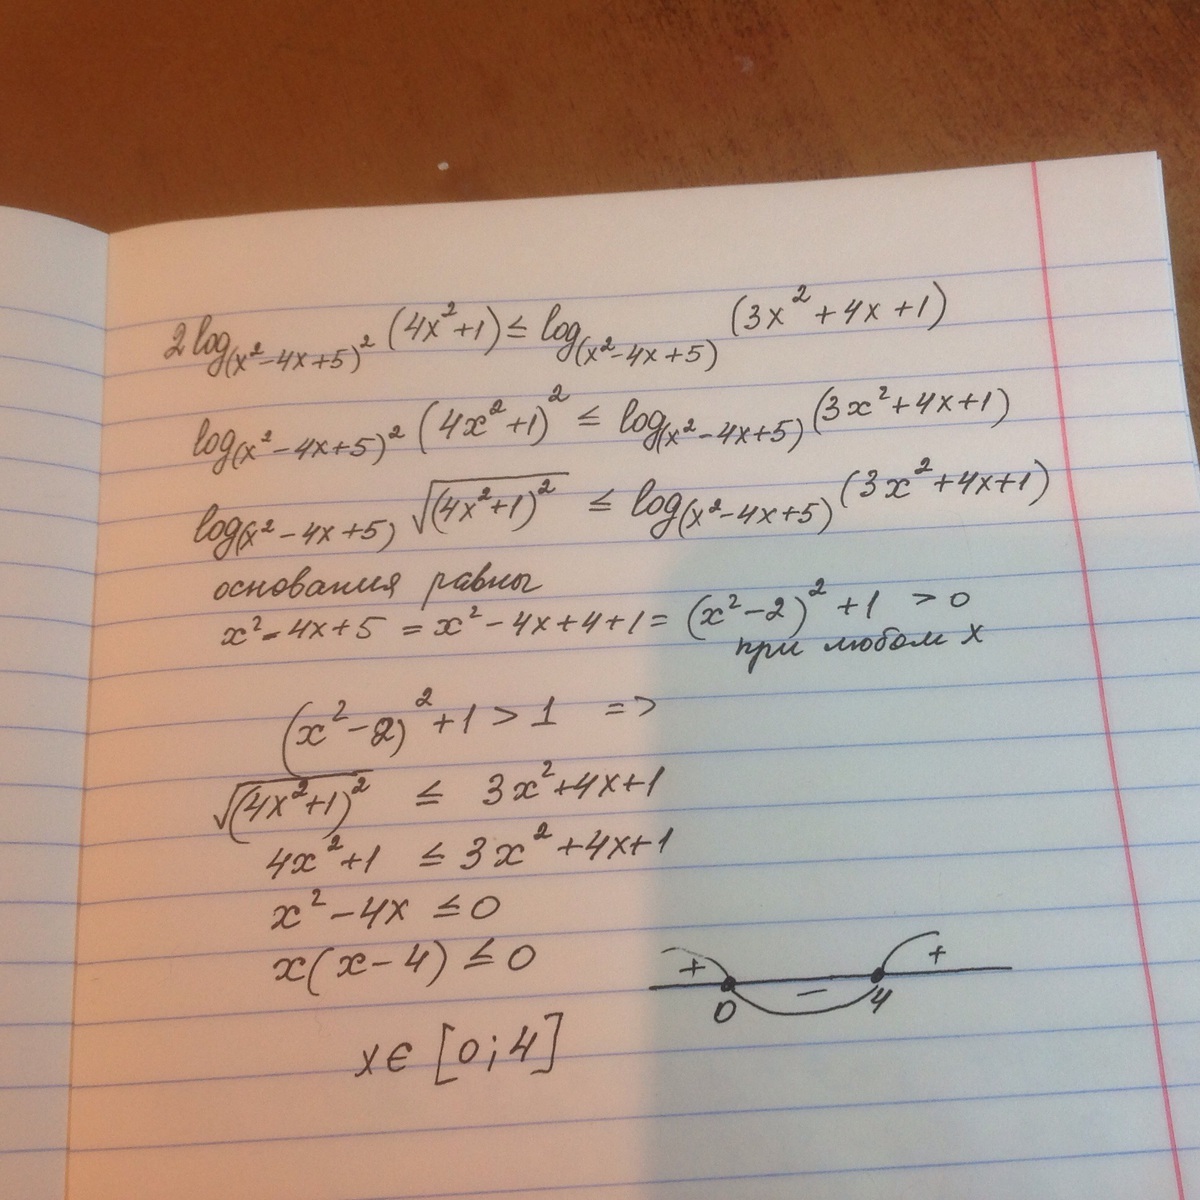 2log_(x²-4x+5)² (4x²+1) ≤ log_(x²-4x+5) (3x²+4x+1)
log_(x²-4x+5)² (4x²+1)² ≤ log_(x²-4x+5) (3x²+4x+1)
log_(x²-4x+5) √(4x²+1)² ≤ log_(x²-4x+5) (3x²+4x+1)
основания равны
x²-4x+5 = x²-4x+4+1 = (x²-2)²+1 > 0
при любом x
(x²-2)²+1 > 1 =>
√(4x²+1)² ≤ 3x²+4x+1
4x²+1 ≤ 3x²+4x+1
x²-4x ≤ 0
x(x-4) ≤ 0
+ 0 - 4 +
x ∈ [0;4]